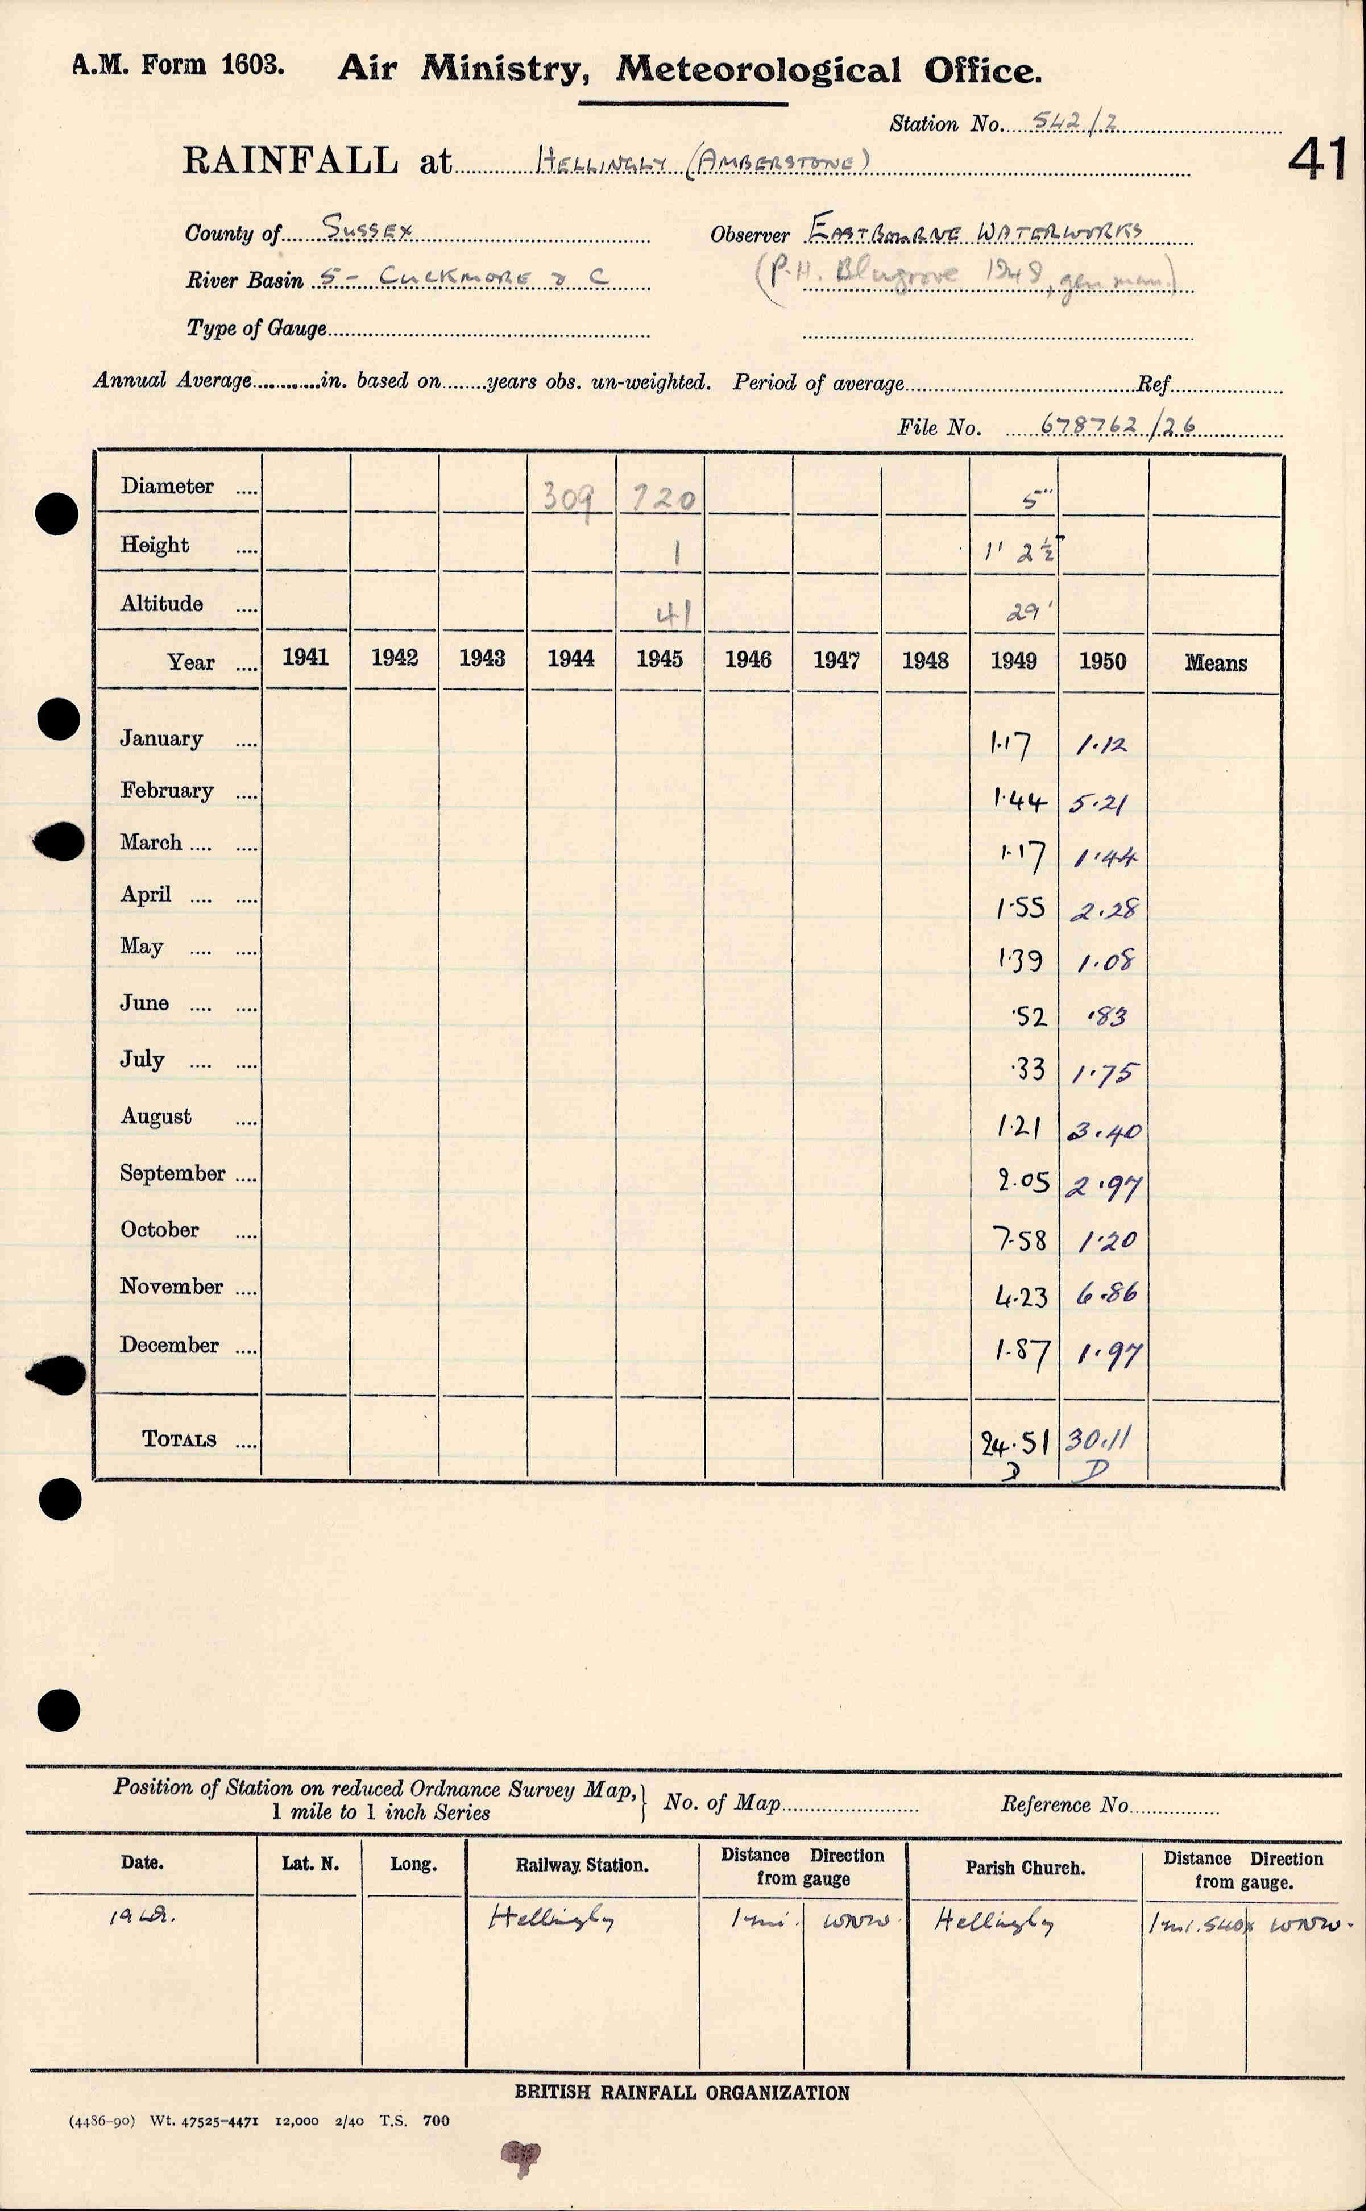 A.M. Form 1603. Air Ministry, Meteorological Office.
Station No. 542/2
41
RAINFALL at HELLINGLY (AMBERSTONE)
County of SUSSEX Observer EASTBOURNE WATERWORKS
River Basin 5 - CUCKMORE & C (P.H. Blugrove 1948, gen. man.)
Type of Gauge
Annual Average in. based on years obs. un-weighted. Period of average Ref.
File No. 678762/26
Diameter .... 309 720 5"
Height .... 1 1' 2½"
Altitude .... 41 29'
Year .... 1941 1942 1943 1944 1945 1946 1947 1948 1949 1950 Means
January .... 1.17 1.12
February .... 1.44 5.21
March .... .... 1.17 1.44
April .... .... 1.55 2.28
May .... .... 1.39 1.08
June .... .... .52 .83
July .... .... .33 1.75
August .... 1.21 3.40
September .... 2.05 2.97
October .... 7.58 1.20
November .... 4.23 6.86
December .... 1.87 1.97
TOTALS .... 24.51 30.11
D D
Position of Station on reduced Ordnance Survey Map, } No. of Map Reference No.
1 mile to 1 inch Series
Date. Lat. N. Long. Railway Station. Distance Direction from gauge Parish Church. Distance Direction from gauge.
Hellingly 1 mi. WNW. Hellingly 1 mi. WNW.
BRITISH RAINFALL ORGANIZATION
(4486-90) Wt. 47525-4471 12,000 2/40 T.S. 700